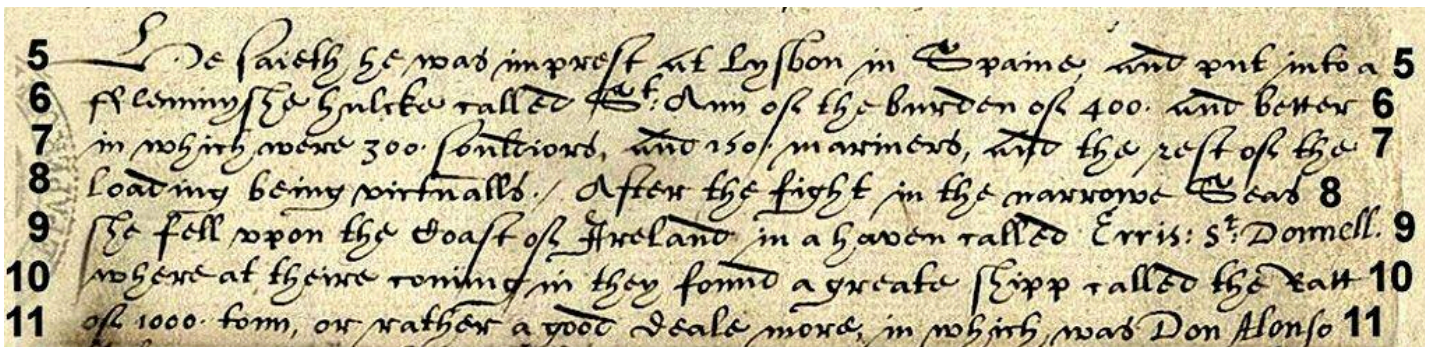 5 He saieth he was imprest at Lysbon in Spaine, and put into a 5
6 fflemmyshe hulcke called St: Ann of the burden of 400. and better 6
7 in which were 300. souldiors, and 150. mariners, and the rest of the 7
8 loading being victualls./ After the fight in the narrowe Seas 8
9 she fell vpon the Coast of Ireland in a haven called Erris: St: Donnell. 9
10 where at theire coming in they found a greate shipp called the Ratt 10
11 of 1000. tonn, or rather a good deale more, in which was Don Alonso 11